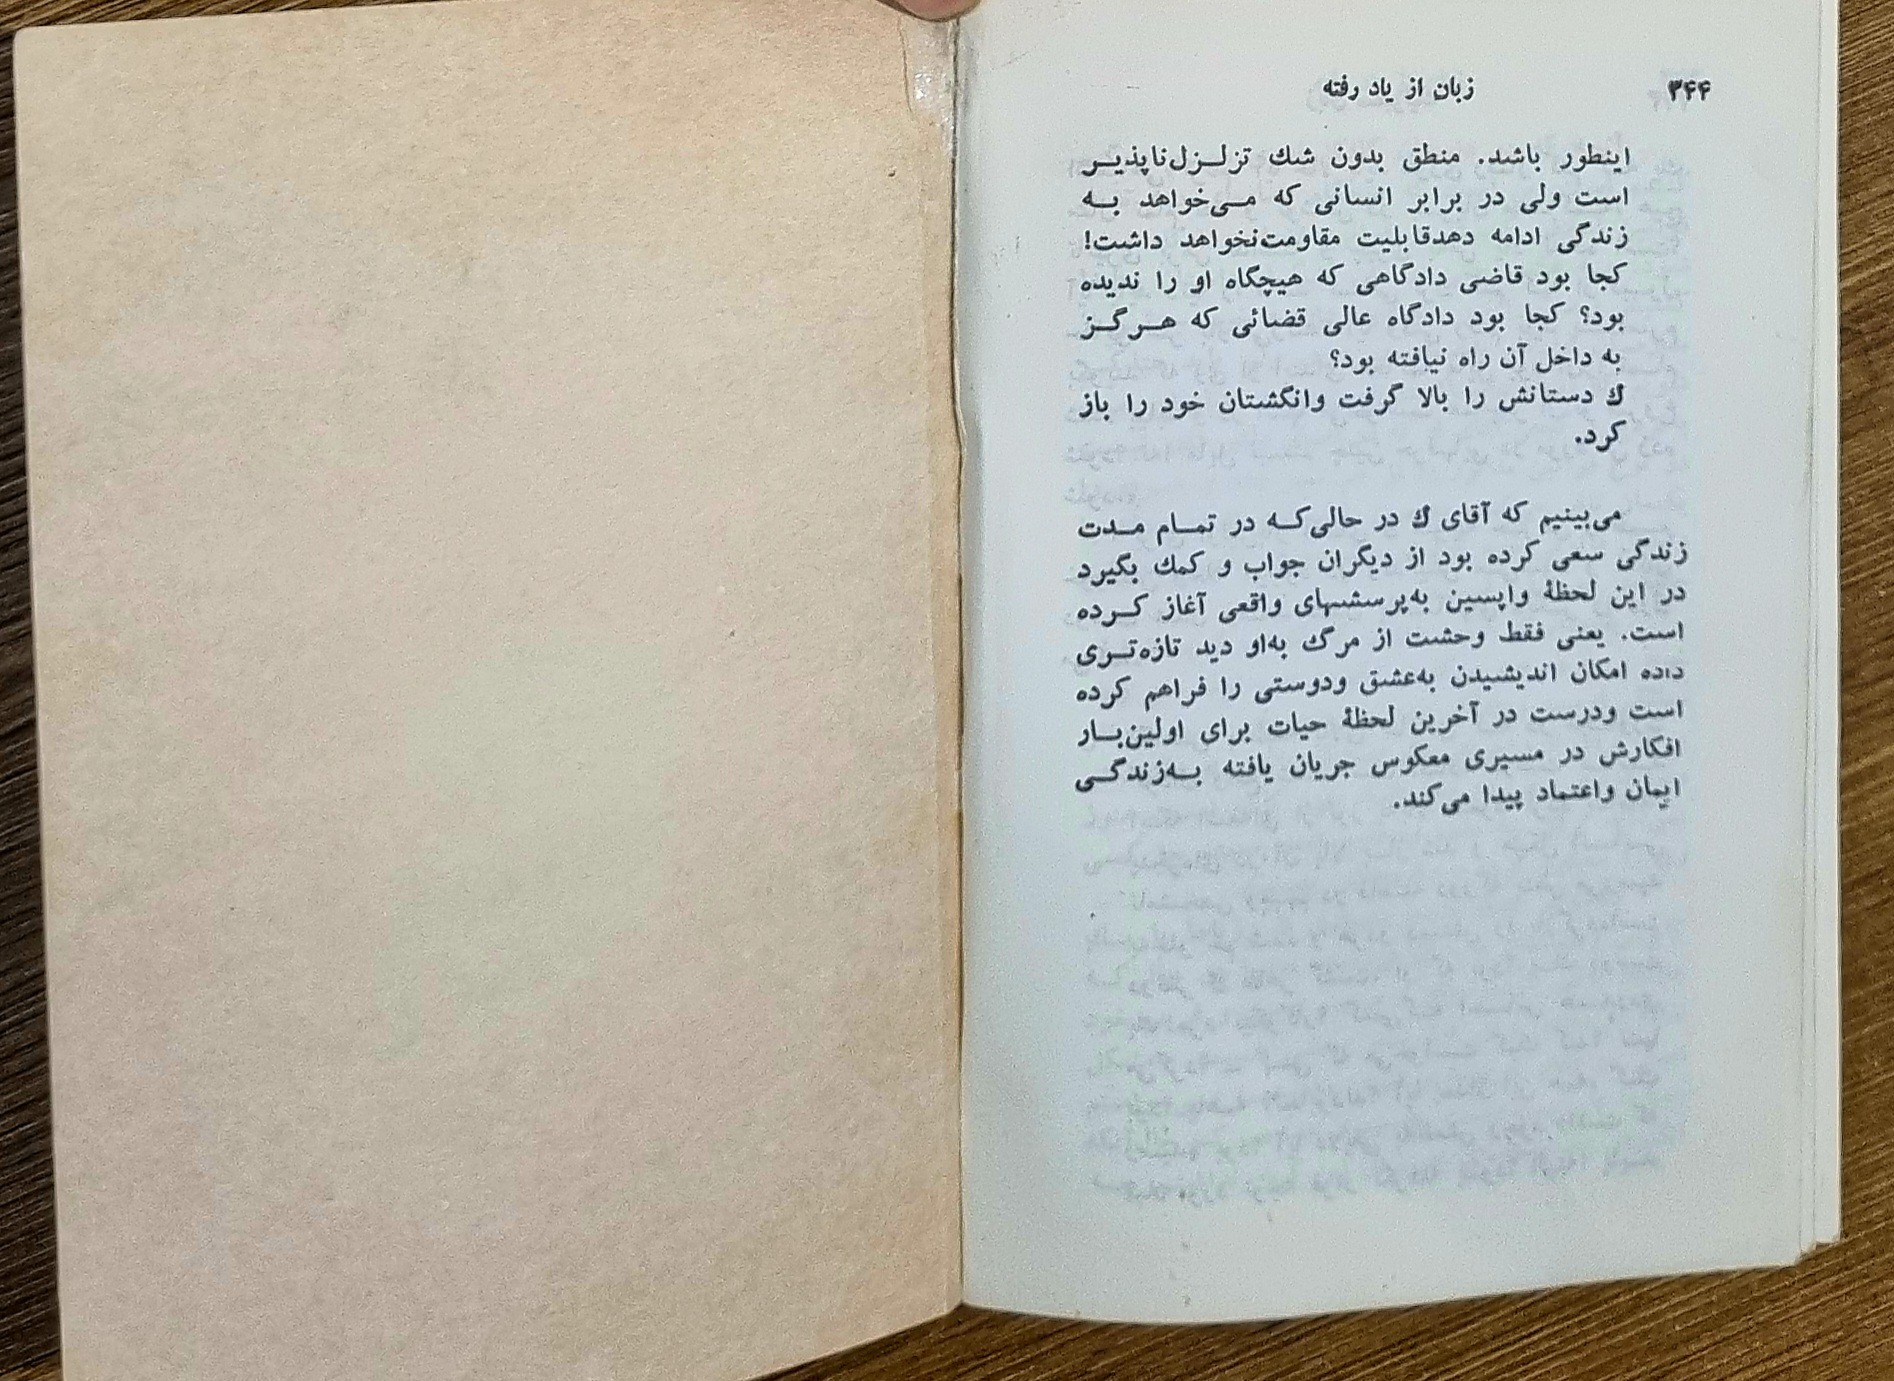 ۳۴۴ زبان از یاد رفته
اینطور باشد. منطق بدون شك تزلــزل‌ناپذیــر
است ولی در برابر انسانی که مــی‌خواهد بــه
زندگی ادامه دهدقابلیت مقاومت‌نخواهد داشت!
کجا بود قاضی دادگاهی که هیچگاه او را ندیده
بود؟ کجا بود دادگاه عالی قضائی که هــرگــز
به داخل آن راه نیافته بود؟
ك دستانش را بالا گرفت وانگشتان خود را باز
کرد.
می‌بینیم که آقای ك در حالی‌کــه در تمــام مــدت
زندگی سعی کرده بود از دیگران جواب و کمك بگیرد
در این لحظهٔ واپسین به‌پرسشهای واقعی آغاز کــرده
است. یعنی فقط وحشت از مرگ به‌او دید تازه‌تــری
داده امکان اندیشیدن به‌عشق ودوستی را فراهم کرده
است ودرست در آخرین لحظهٔ حیات برای اولین‌بــار
افکارش در مسیری معکوس جریان یافته بــه‌زندگــی
ایمان واعتماد پیدا می‌کند.